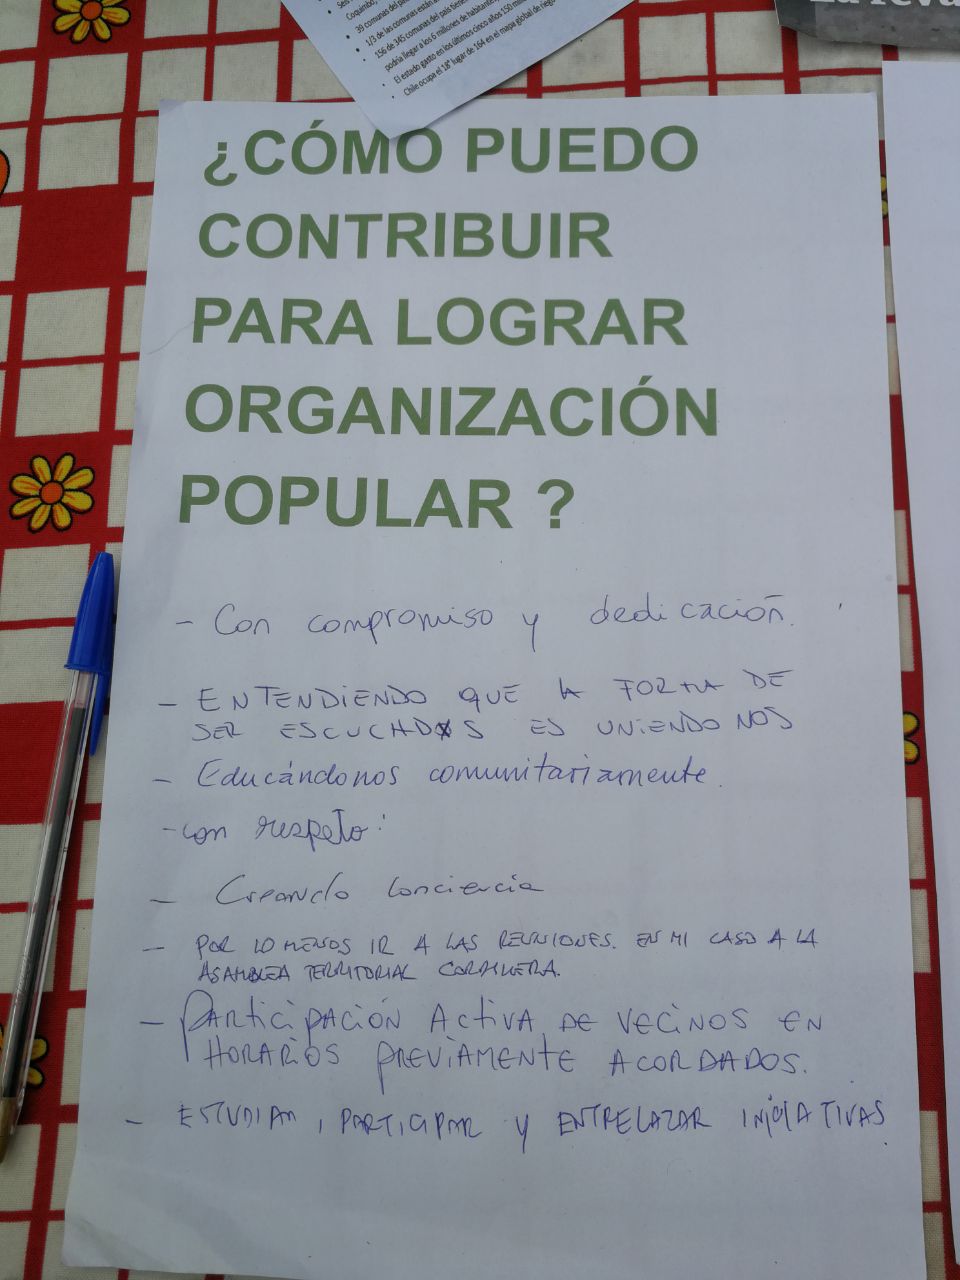 Coquimbo,
podría llegar a los 6 millones de habitantes
El estado gasto en los últimos cinco años 150 mil
Chile ocupa el 18° lugar de 164 en el mapa global de riesg
¿CÓMO PUEDO
CONTRIBUIR
PARA LOGRAR
ORGANIZACIÓN
POPULAR ?
- Con compromiso y dedicación.
- ENTENDIENDO QUE LA FORMA DE
SER ESCUCHADOS ES UNIENDONOS
- Educándonos comunitariamente.
- con respeto.
- Creando conciencia
- POR LO MENOS IR A LAS REUNIONES. EN MI CASO A LA
ASAMBLEA TERRITORIAL CORDILLERA.
- PARTICIPACIÓN ACTIVA DE VECINOS EN
HORARIOS PREVIAMENTE ACORDADOS.
- ESTUDIAR, PARTICIPAR Y ENTRELAZAR INICIATIVAS